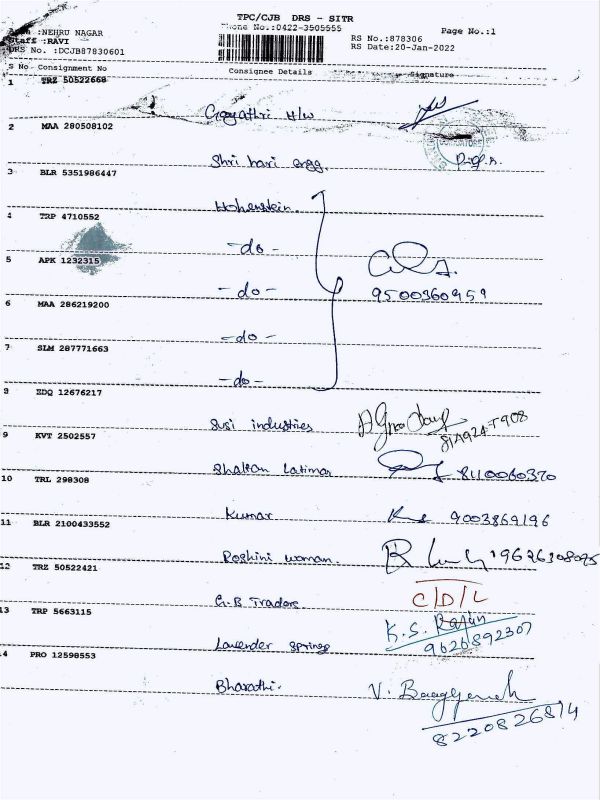 TPC/CJB DRS - SITR
Area :NEHRU NAGAR
Phone No.:0422-3505555
Page No.:1
Staff :RAVI
RS No.:878306
DRS No. :DCJB87830601
RS Date:20-Jan-2022
S No Consignment No Consignee Details Signature
1 TRZ 50522668
Gayathri H/W
2 MAA 280508102
Shri hari engg.
3 BLR 5351986447
Hohenstein.
4 TRP 4710552
-do-
5 APK 1232315
-do- 9500360959
6 MAA 286219200
-do-
7 SLM 287771663
-do-
8 EDQ 12676217
Susi industries
9 KVT 2502557
Shakan Latimar 8110060370
10 TRL 298308
Kumar 9003869196
11 BLR 2100433552
Roshini woman. 9626308095
12 TRZ 50522421
G.B Traders C/D/L
13 TRP 5663115
K.S. Rajan
Lavender springs 9626892307
14 PRO 12598553
Bharathi. V.
8220826814